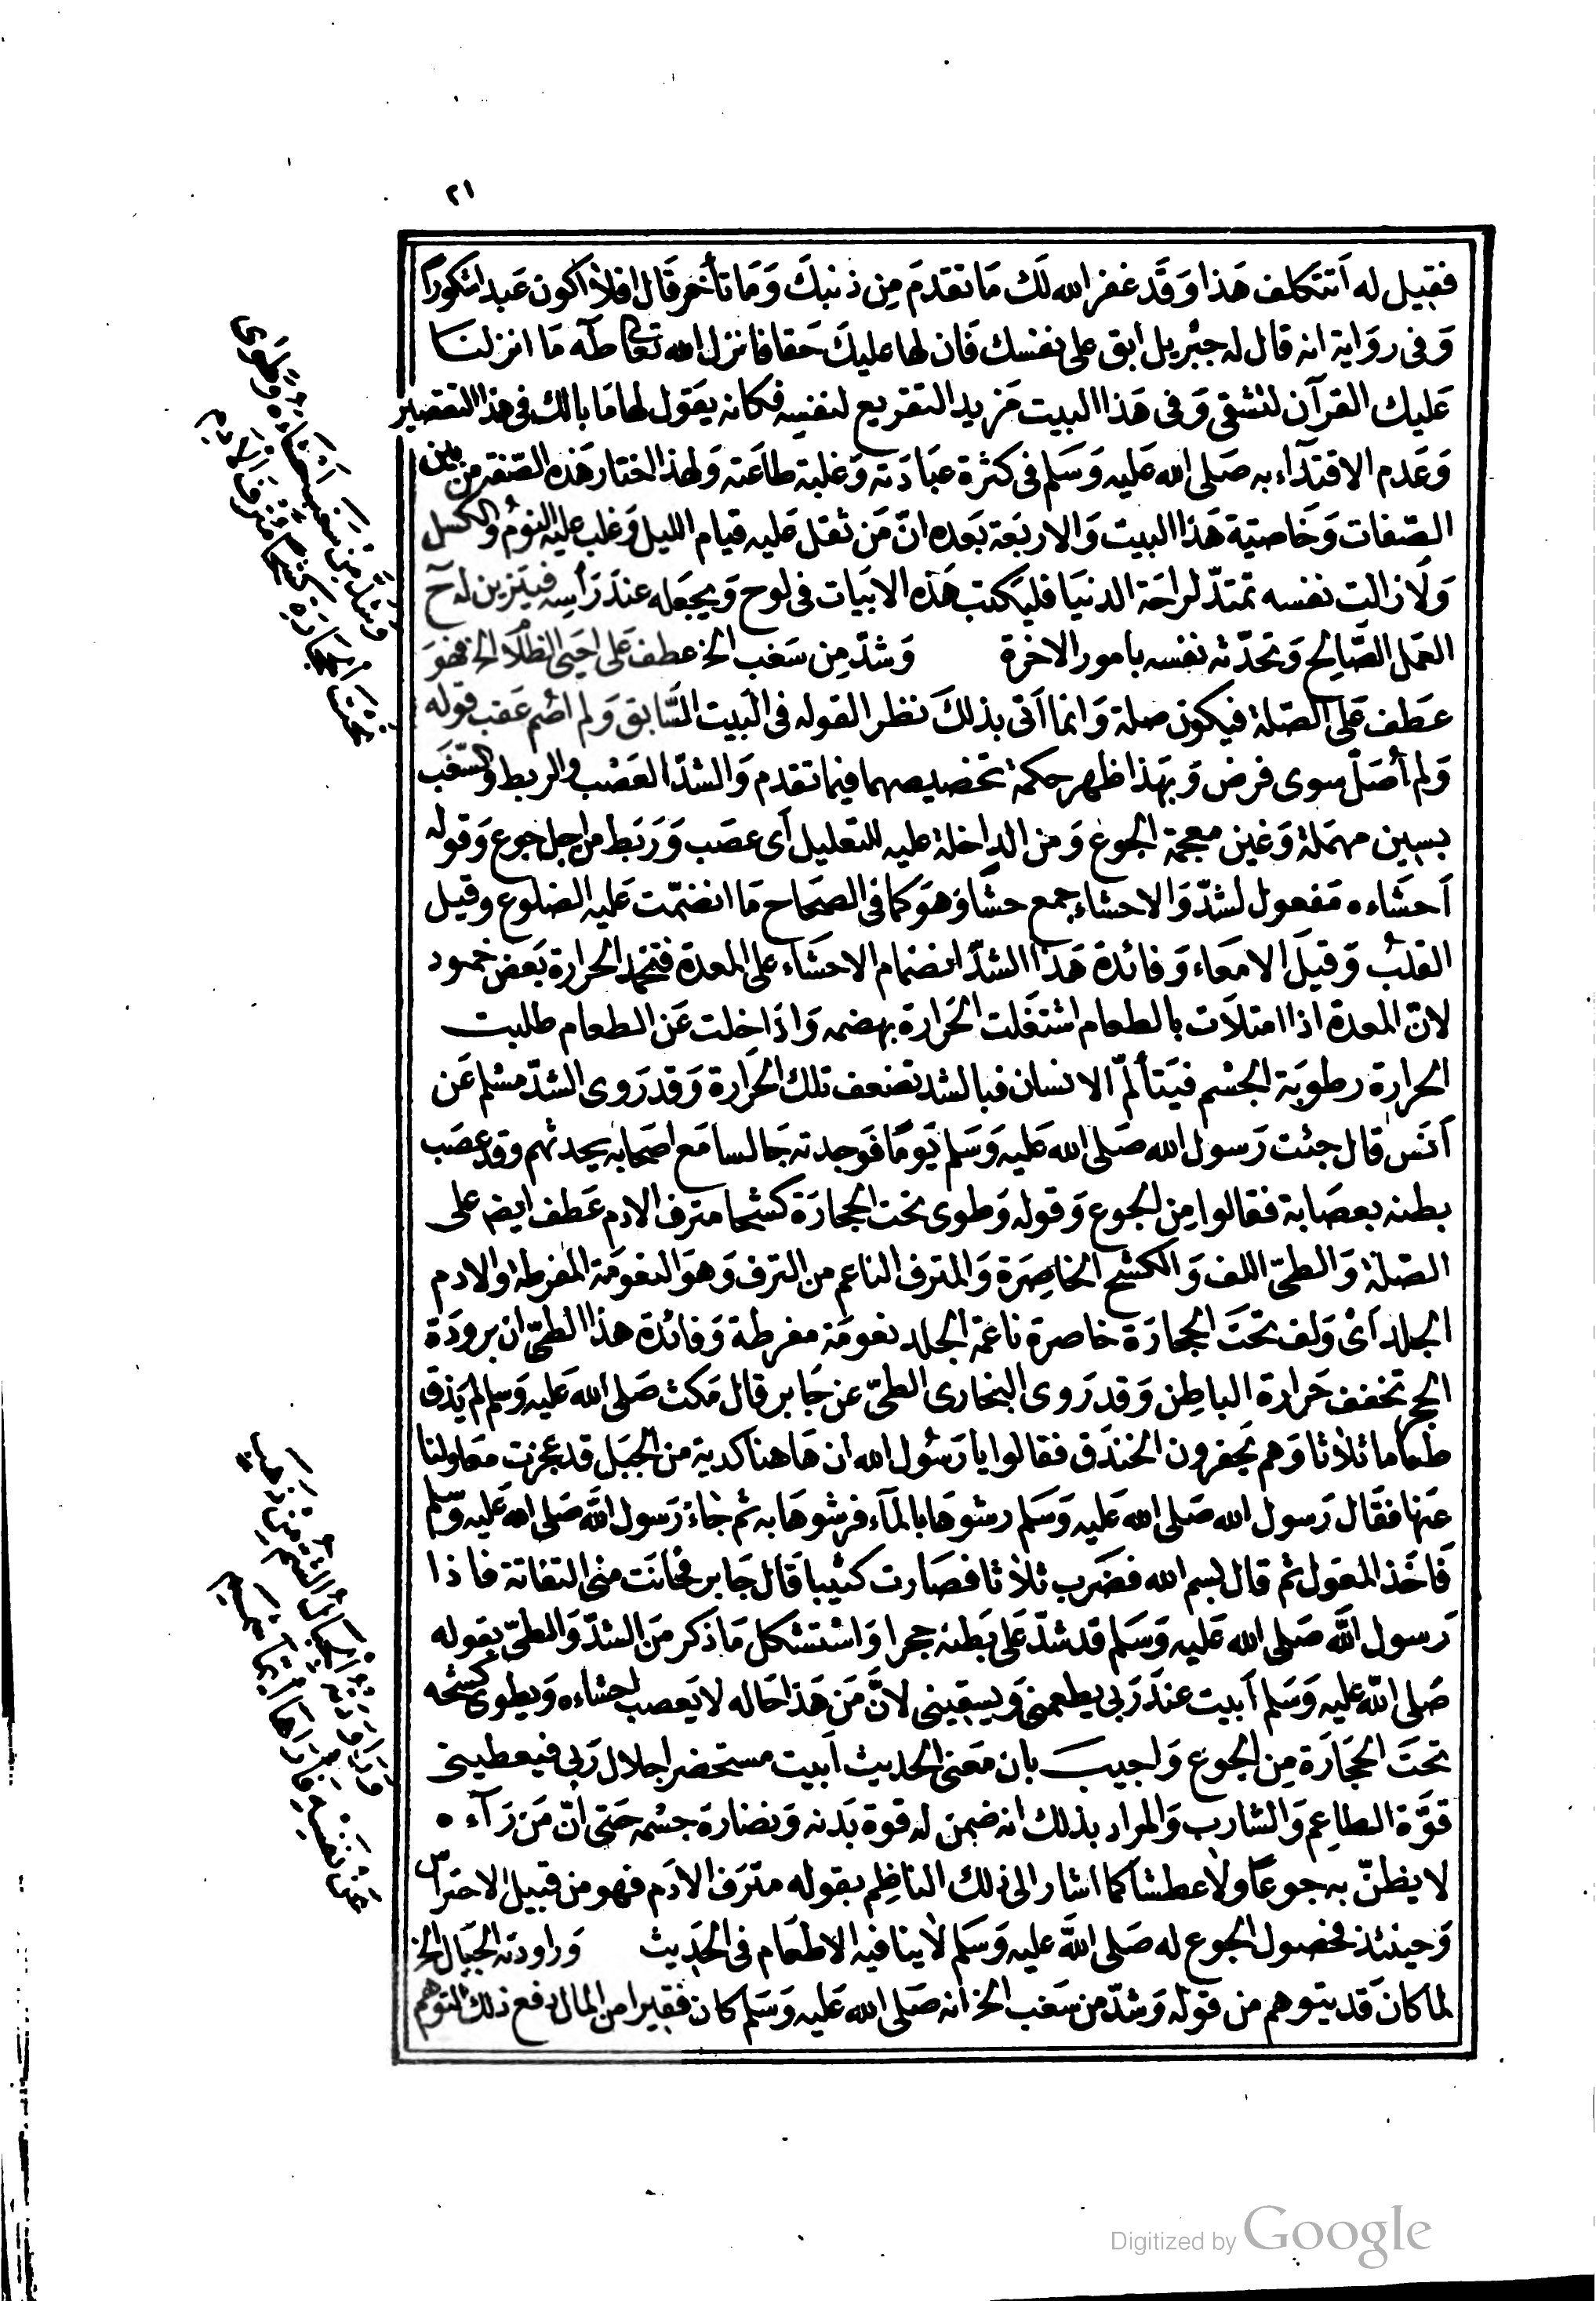 ٢١
فقيل له أتتكلف هَذا وَقَد غفر الله لَك مَا تقدمَ مِن ذنبكَ وَمَا تأخر قَال افلا اكون عَبدا شكورا
وَفى روَاية انه قال له جبْريل ابق على نفسك فَان لها عليكَ حَقا فانزل الله تعَالى طٰه مَا انزلنا
عَليك القرآن لتشقى وَفى هَذا البيت مَزيد التقريع لنفسِه فكانه يقول لها مَا بالك فى هذا التقصير
وَعَدم الاقتدآء به صَلى الله عَليه وَسَلم فى كثرة عبَادَته وَغلبة طاعَته وَلهذا اختار هَذه الصّفة من بين
الصّفات وَخَاصّية هَذا البيت وَالاربَعة بَعده انّ مَن ثقل عَليه قيام الليل وَغلب عليه النومُ والكسل
وَلَا زالت نفسه تمتدّ لراحَة الدنيَا فليَكتب هَذه الابيَات فى لوح وَيجعَله عندَ رَأسِه فيتزين له ح
العَمل الصَّالح وَتحدّثه نفسه بامور الاخرة وَشدّ مِن سَغب الخ عطف عَلى احيَى الظلا الخ فهوَ
عَطف عَلى الصّلة فيكون صلة وَانما اتى بذلكَ نظرا لقوله فى البَيت السَّابق وَلم اصُم عَقب قوله
وَلم أُصَلّ سوى فرض وَبهَذا ظهر حكمة تخصيصهما فيما تقدم وَالشدّ العَصْب والربط والسّغَب
بسين مهمَلة وَغين معجمة الجوع وَمن الداخلة عليه للتعليل اَى عصَب وَرَبَط من اجل جوع وَقوله
اَحشَاءه مَفعول لشدّ وَالاحشاء جمع حشَا وَهوَ كما فى الصحَاح مَا انضمّت عَليه الضلوع وقيل
القلبُ وَقيلَ الامعَاء وَفائدة هَذا الشدّ انضمام الاحشَاء على المعدة فتخمد الحرارة بَعض خمود
لانّ المعدة اذا امتلاَت بالطعام اشتغَلت الحَرارة بهضمه وَاذَا خلت عَن الطعام طلبت
الحرارة رطوبَة الجسْم فيَتألمّ الانسان فبالشد تضعف تلك الحَرارة وَقد رَوى الشدّ مسْلم عَن
اَنَس قال جئت رَسول الله صَلى الله عَليه وَسَلم يَومًا فوَجدته جَالسا مَع اصحَابه يحدثهم وَقد عصَب
بطنه بعصَابة فقالوا مِن الجوع وَقوله وَطوى تحت الحجارَة كشحا مترف الادم عَطف ايضا على
الصّلة وَالطىّ اللف وَالكشح الخاصِرَة وَالمترف الناعم من الترف وَهوَ النعومَة المفرطة والادم
الجلد اَىْ وَلف تحتَ الحجارَة خاصرة ناعمة الجلد نعومَة مفرطة وَفائدة هذا الطىّ ان برودَة
الحجر تخفف حَرارة الباطِن وَقد رَوى البخارى الطىّ عن جَابر قال مَكث صَلى الله عَليه وَسلم لم يَذق
طعاما ثلاثا وَهم يَحفرون الخندَق فقالوا يا رَسُول الله ان هَاهنا كدية من الجَبَل قد عجزت مَعاولنا
عَنها فقَال رَسول الله صَلى الله عَليه وَسَلم رشوهَا بالمآء فرشوهَا به ثم جَاءَ رَسول الله صَلى الله عَليه وَسَلم
فَاخَذ المعَول ثم قال بسم الله فضَرب ثلاثا فصَارت كثيبا قَال جَابر فحَانَت منى التفاتة فاذا
رَسول الله صَلى الله عَليه وَسَلم قد شدّ عَلى بَطنه حجرا وَاسْتشكل مَا ذكر مَن الشدّ وَالطىّ بقوله
صَلى الله عَليه وَسَلم اَبيت عندَ رَبى يطعمنى وَيسقينى لانَّ مَن هَذا حَاله لا يَعصب احشاءه وَيطوى كشحه
تحتَ الحجَارَة مِن الجوع وَاجيب بان مَعنى الحديث اَبيت مستحضر اجلال رَبى فيعطينى
قوَّة الطاعِم وَالشارب وَالمراد بذلك انه ضمن له قوة بَدنه وَنضارة جسْمه حَتى انّ مَن رَآءه
لا يظنّ به جوعًا ولا عطشا كما اشار الى ذلك الناظِم بقوله مترَف الادَم فهو من قبيل الاحترَاس
وَحينئذ فحصول الجوع له صَلى الله عليه وَسَلم لا ينافيه الاطعَام فى الحَدِيث وَراودته الجبَال الخ
لما كانَ قد يتوهم من قوله وَشدّ من سَغب الخ انه صَلى الله عَليه وَسَلم كان فقيرا من المال دفع ذلك التوهم
وَشَدَّ مِنْ سَغَبٍ اَحْشَاءَهُ وَطَوَى
تَحْتَ الْحِجَارَةِ كَشْحًا مُتْرَفَ الْاَدَمِ
وَرَاوَدَتْهُ الْجِبَالُ الشُّمُّ مِنْ ذَهَبٍ
عَنْ نَفْسِهِ فَاَرَاهَا اَيَّمَا شَمَمِ
Digitized by Google